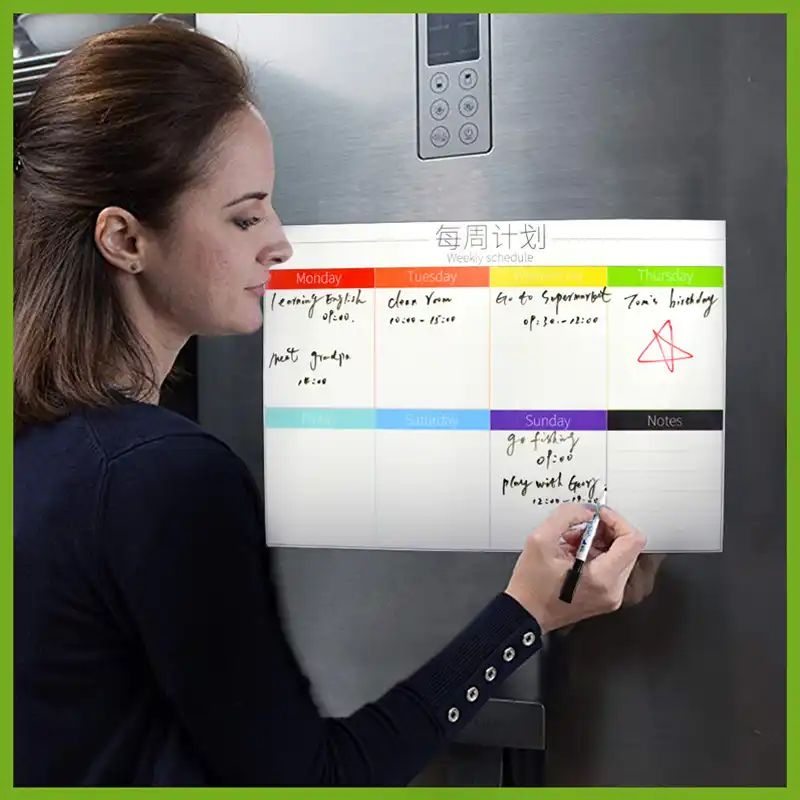 每周计划
Weekly schedule
Monday
Tuesday
Wednesday
Thursday
learning English
09:00
meet grandpa
clean room
10:00-15:00
Go to Supermarket
09:30-12:00
Tom's birthday
Friday
Saturday
Sunday
Notes
go fishing
09:00
play with
12:00-